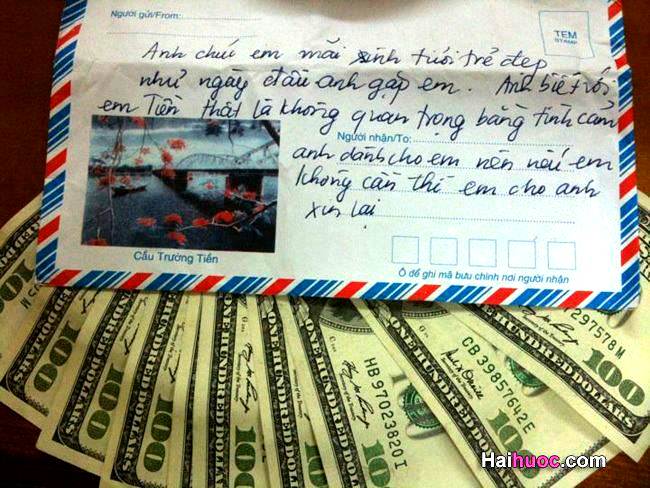 Người gửi/From:
TEM
STAMP
Anh chúc em mãi xinh tươi trẻ đẹp
như ngày đầu anh gặp em. Anh biết với
em Tiền thật là không quan trọng bằng tình cảm
Người nhận/To:
anh dành cho em nên nếu em
không cần thì em cho anh
xin lại
Cầu Trường Tiền
Ô để ghi mã bưu chính nơi người nhận
100
100
100
100
100
100
100
HUNDRED DOLLARS
HB 97023820 I
CB 39857642 E
297578 M
Haihuoc.com